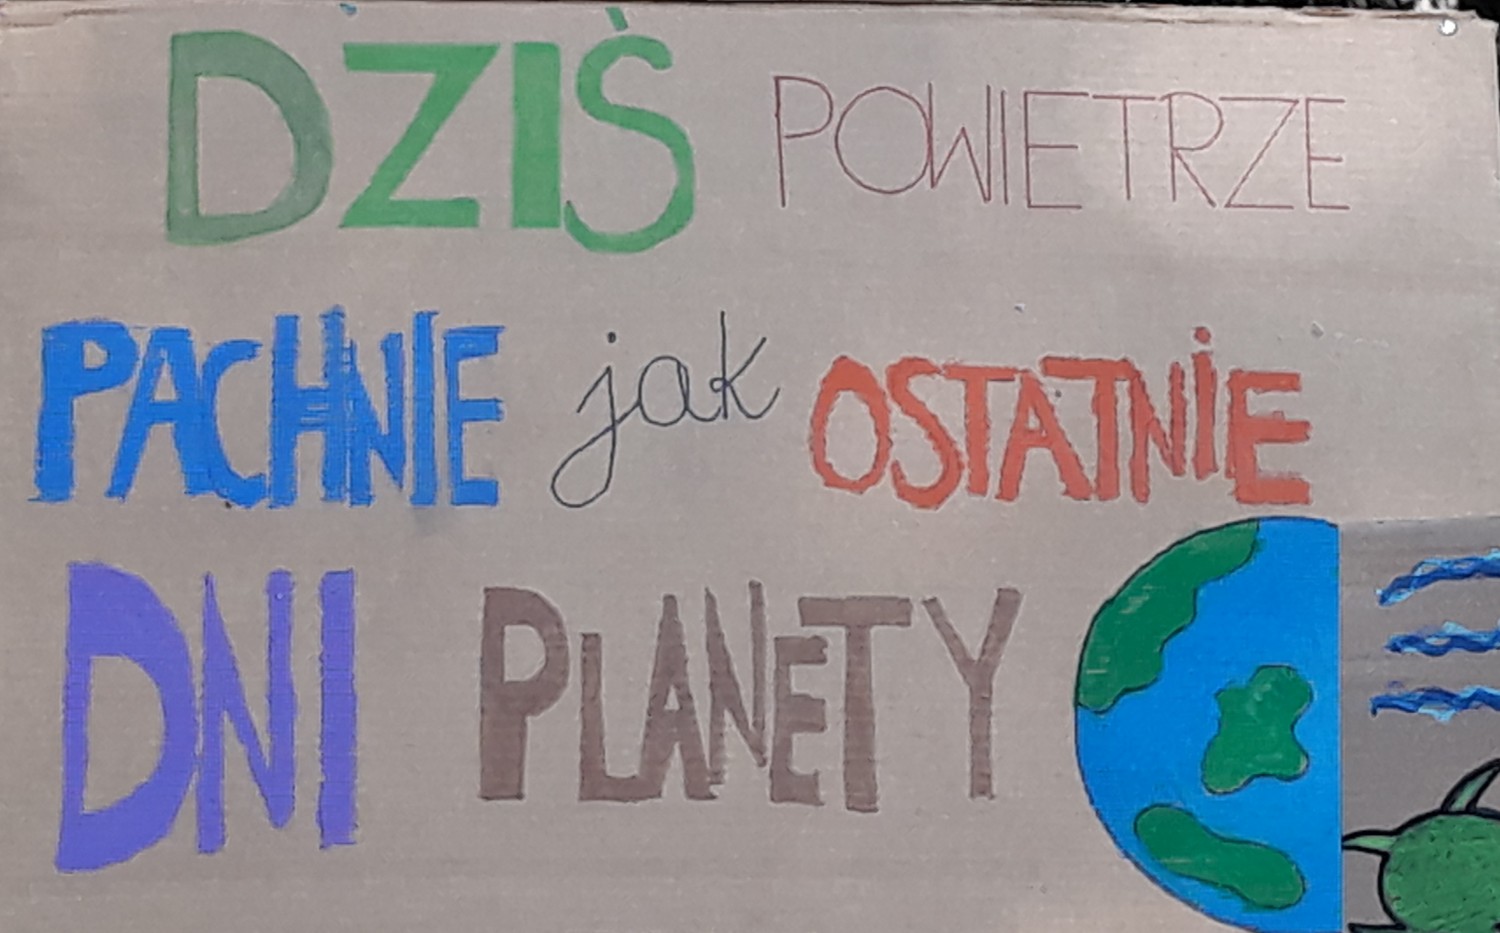 DZIŚ POWIETRZE
PACHNIE jak OSTATNiE
DNI PLANETY